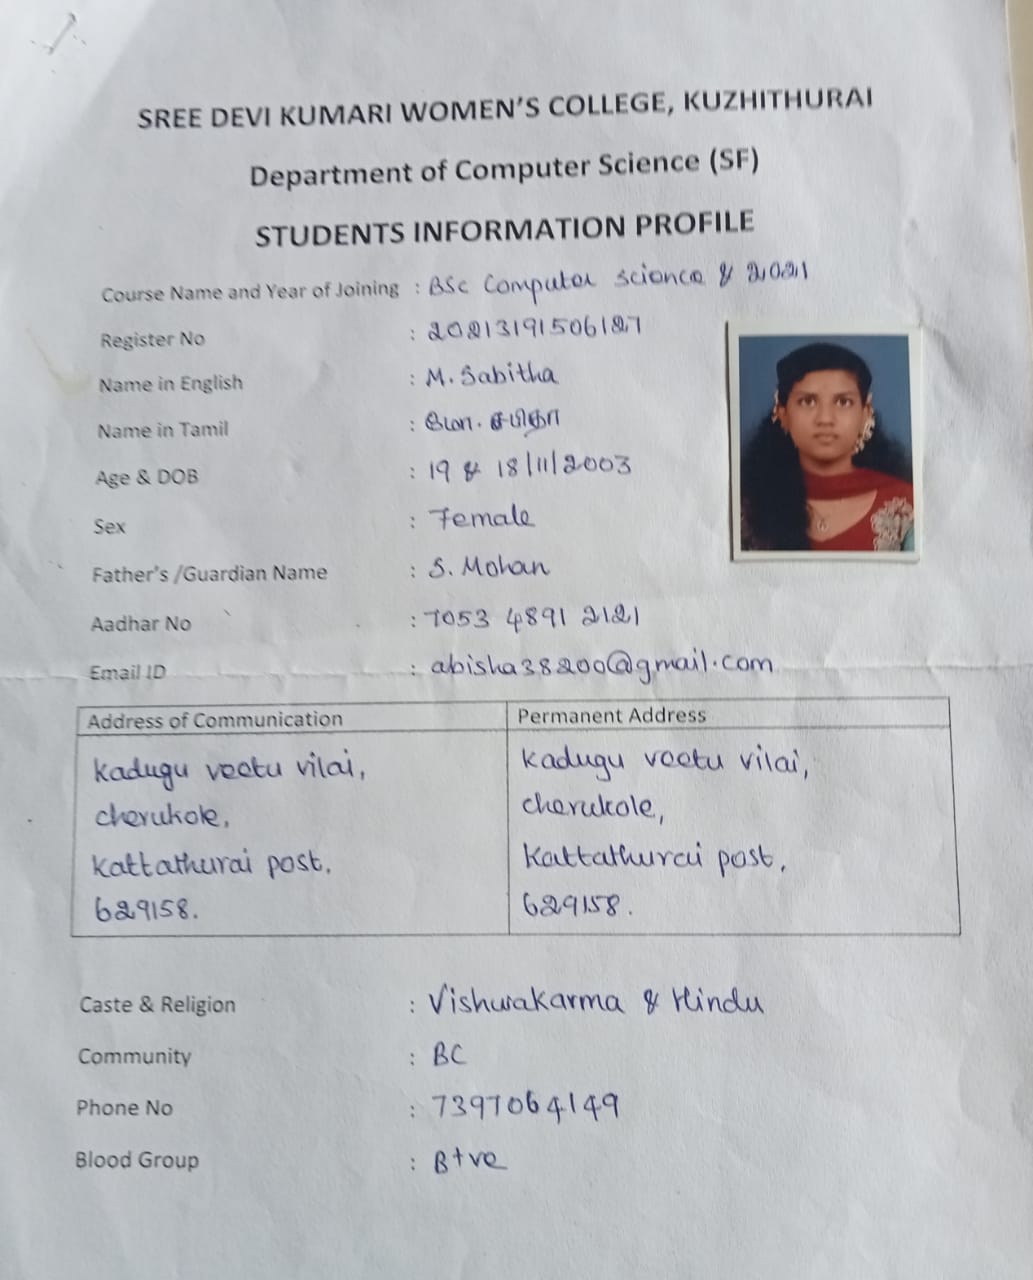 SREE DEVI KUMARI WOMEN'S COLLEGE, KUZHITHURAI
Department of Computer Science (SF)
STUDENTS INFORMATION PROFILE
Course Name and Year of Joining : BSc Computer science & 2021
Register No : 20213191506127
Name in English : M. Sabitha
Name in Tamil : மோ. சபிதா
Age & DOB : 19 & 18/11/2003
Sex : Female
Father's /Guardian Name : S. Mohan
Aadhar No : 7053 4891 2121
Email ID : abisha38200@gmail.com
Address of Communication Permanent Address
Kadugu veetu vilai, Kadugu veetu vilai,
cherukole, cherukole,
Kattathurai post, Kattathurai post,
629158. 629158.
Caste & Religion : Vishwakarma & Hindu
Community : BC
Phone No : 7397064149
Blood Group : B+ve